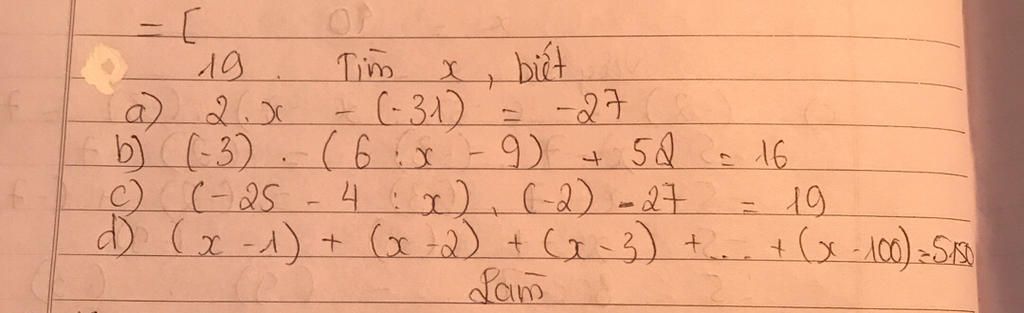 = [
19. Tìm x, biết
a) 2.x - (-31) = -27
b) (-3) . (6 : x - 9) + 52 = 16
c) (-25 - 4 : x) . (-2) - 27 = 19
d) (x - 1) + (x - 2) + (x - 3) + ... + (x - 100) = 5150
Làm